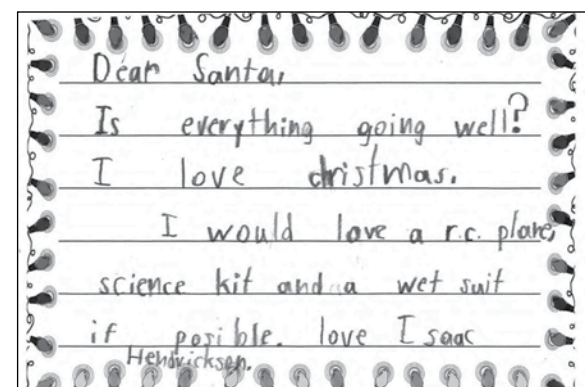 Dear Santa,
Is everything going well?
I love christmas.
I would love a r.c. plane,
science kit and a wet suit
if posible. love Isaac
Hendricksen.